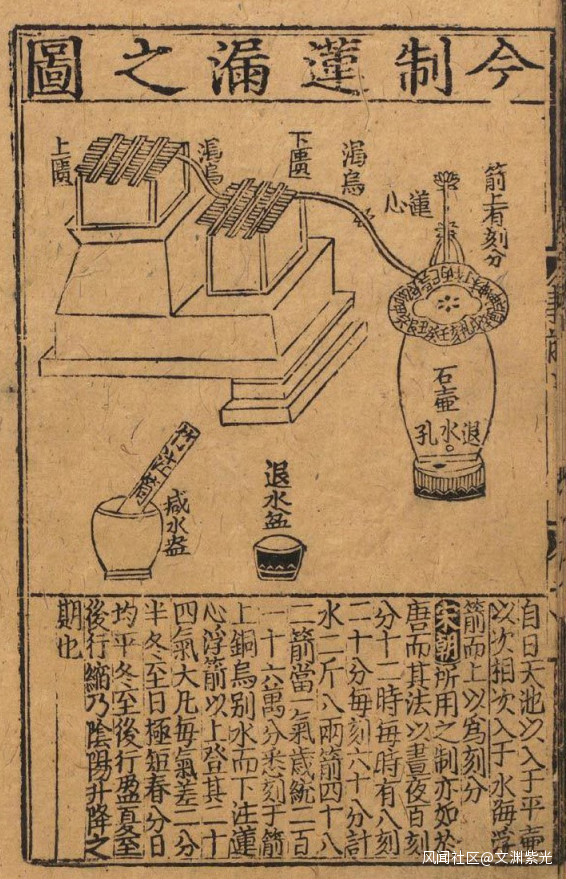 今制蓮漏之圖
箭上看刻分
蓮心
渴烏
下匱
渴烏
上匱
石壺
退水孔
退水盆
咸水盎
自日天池以入于平壺
以次相次入于水海浮
箭而上以爲刻分
宋朝所用之制亦如於
唐而其法以晝夜百刻
分十二時每時有八刻
二十分每刻六十分計
水二斤八兩箭四十八
二箭當一氣歲統二百
一十六萬分悉刻于箭
上銅烏别水而下注蓮
心浮箭以上登其二十
四氣大凡每氣差二分
半冬至日極短春分日
均平冬至後行盈夏至
後行縮乃陰陽升降之
期也
风闻社区@文渊紫光